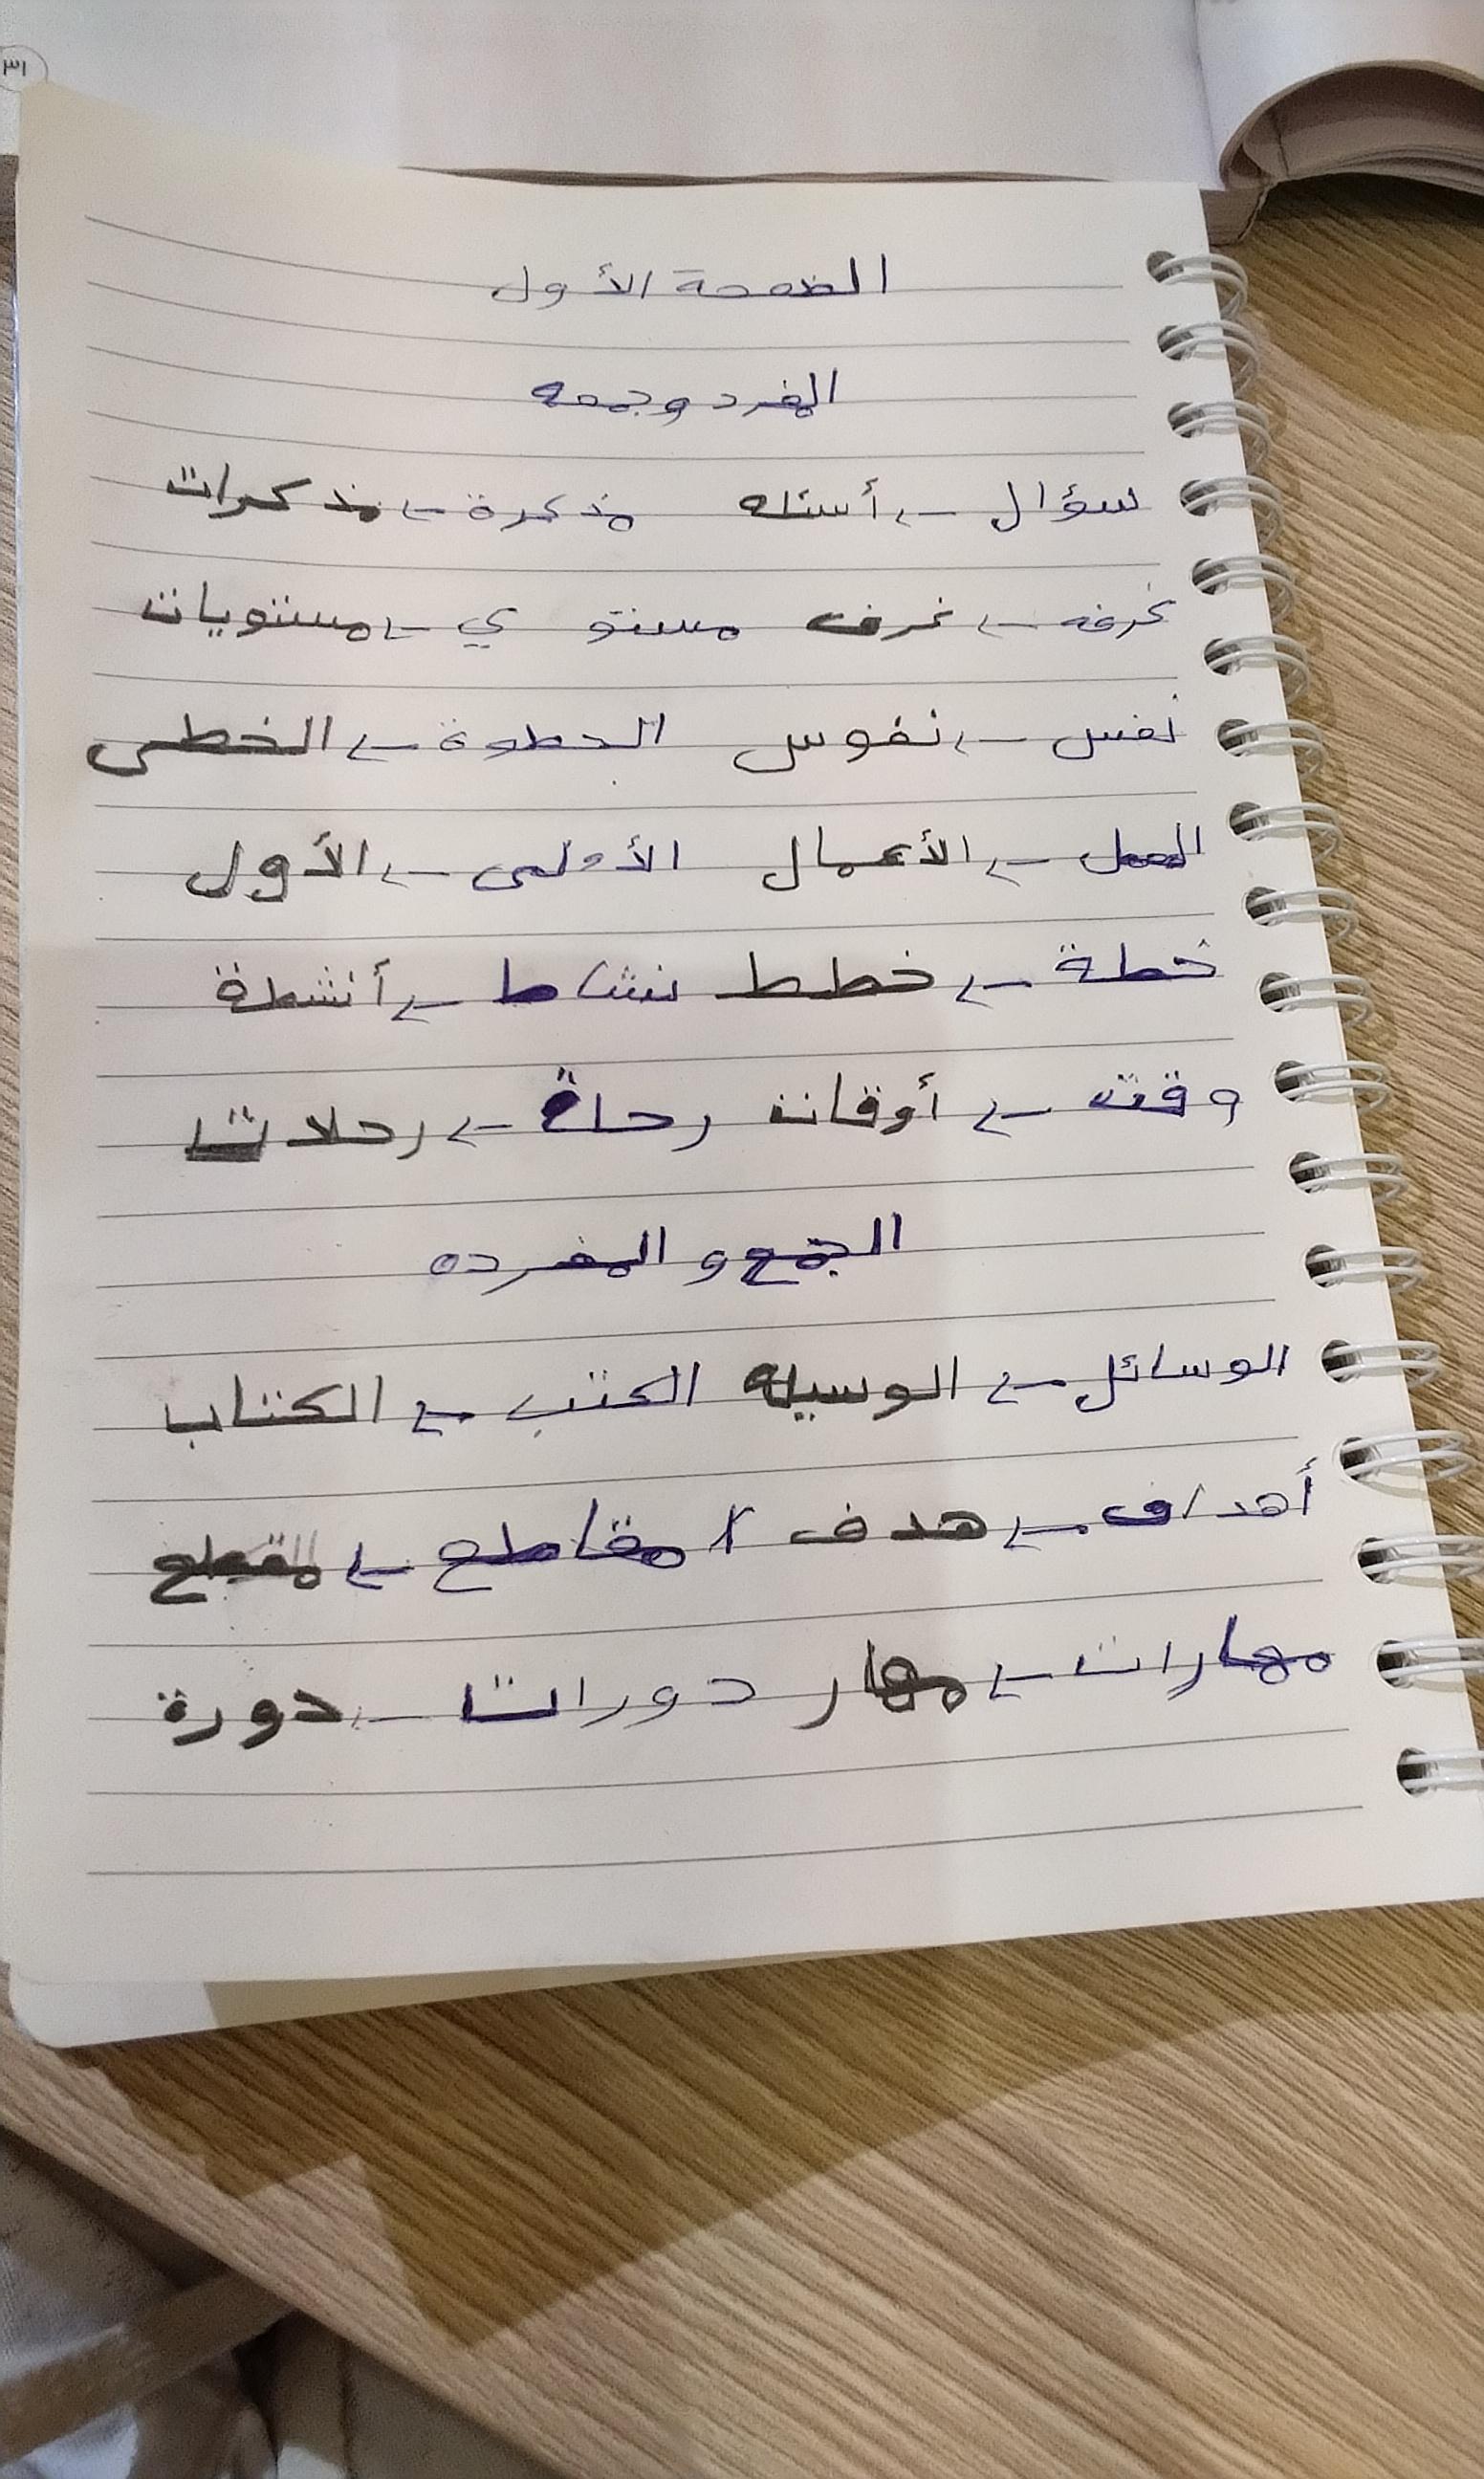 ٣١
الصفحة الأول
المفرد وجمعه
سؤال ← أسئله مذكرة ← مذكرات
غرفه ← غرف مستوي ← مستويات
نفس ← نفوس الخطوة ← الخطى
العمل ← الأعمال الأولى ← الأول
خطة ← خطط نشاط ← أنشطة
وقت ← أوقات رحلة ← رحلات
الجمع و المفرده
الوسائل ← الوسيله الكتب ← الكتاب
أهداف ← هدف / مقاطع ← مقطع
مهارات ← مهار دورات ← دورة